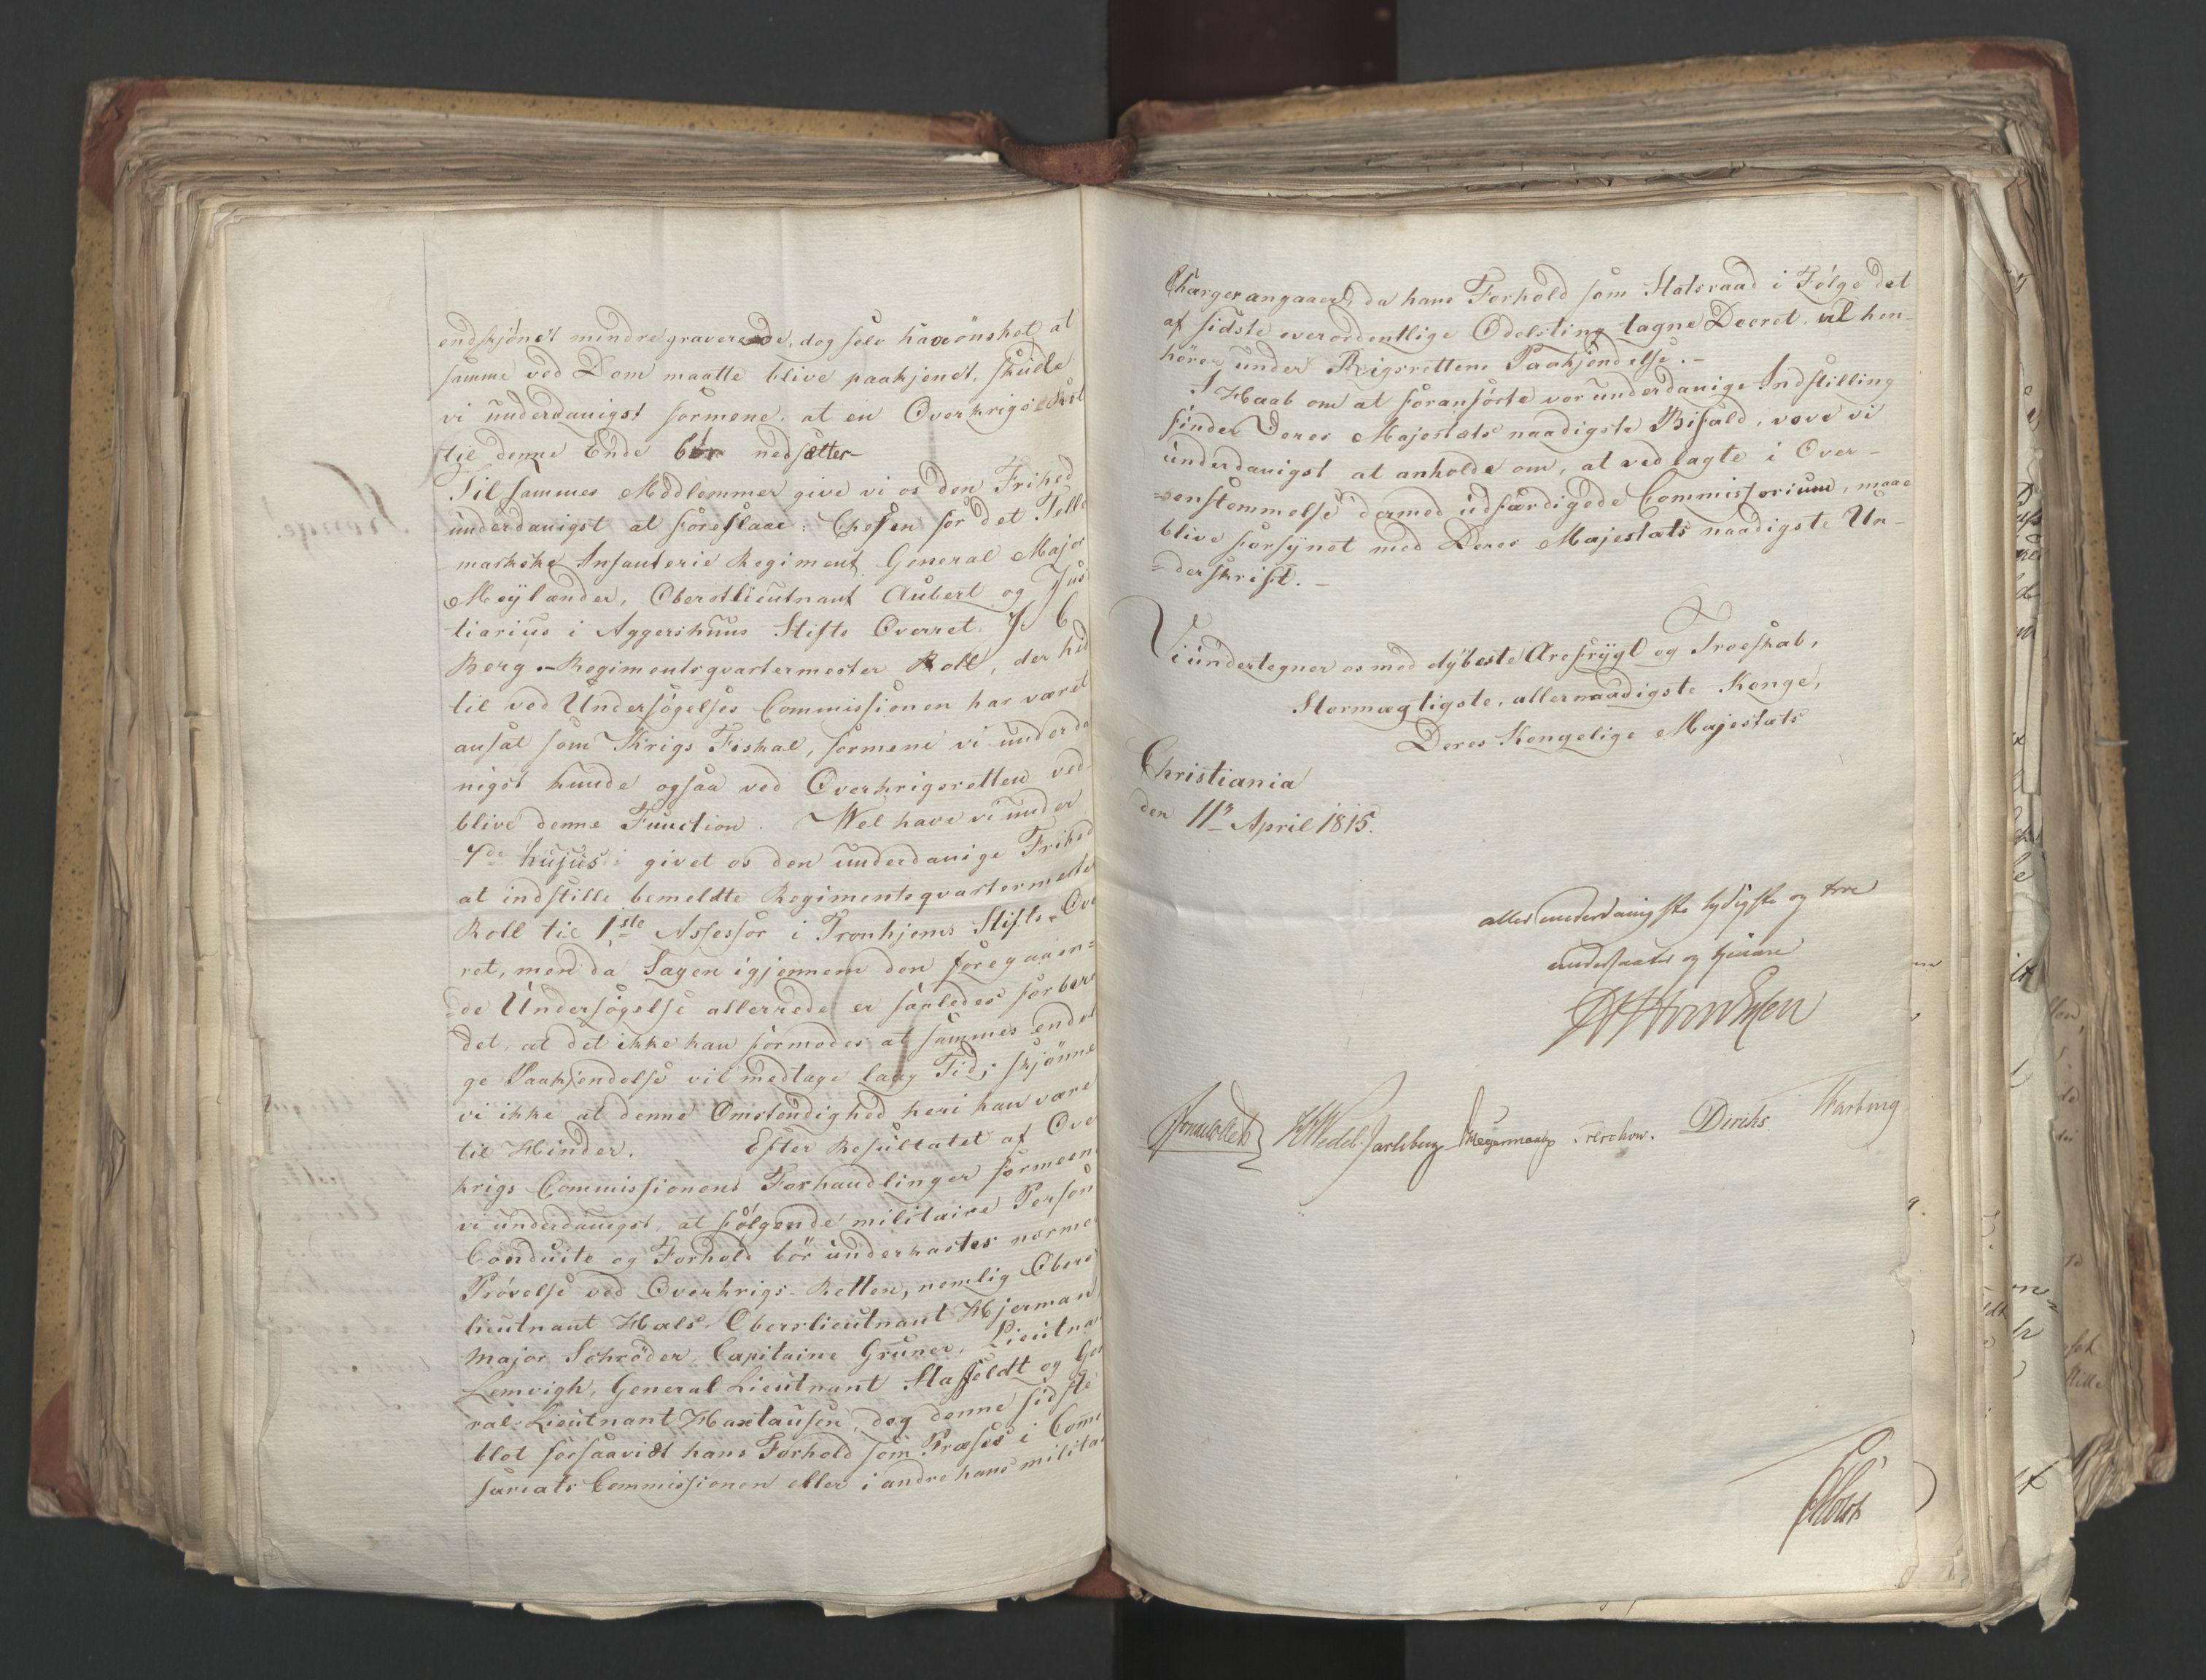 endskjönet mindre graverede, dog selv have önsket at
samme ved Dom maatte blive paakjendt, skulle
vi underdanigst formene, at en Overkrigs Ret
til denne Ende bör nedsættes
Til sammes Medlemmer give vi os den Frihed
underdanigst at foreslaae: Chefen for det Telle
markske Infanterie Regiment General Major
Meÿlænder, Oberstlieutnant Aubert og Jus
tiarius i Aggershuus Stifts Overret J. C.
Berg. - Regimentsqvartermester Roll, der hid
til ved Undersögelses Commissionen har været
ansat som Krigs Fiskal, formene vi underda
nigst kunde ogsaa ved Overkrigsretten ved
blive denne Function. Vel have vi under
7de hujus givet os den underdanige Frihed
at indstille bemeldte Regimentsqvartermester
Roll til 1ste Assessor i Tronhjems Stifts Over
ret, men da Sagen igjennem den foregaaen=
de Undersögelse allerrede er saaledes forbere
det, at det ikke kan formodes at sammes endel
ge Paakjendelse vil medtage lang Tid, skjönne
vi ikke at denne Omstendighed heri kan være
til Hinder. Efter Resultatet af Over
krigs Commissionens Forhandlinger formeene
vi underdanigst, at fölgende militaire Person
Conduite og Forhold bör underkastes nærme
Prövelse ved Overkrigs-Retten, nemlig Oberst
lieutnant Hals, Oberstlieutnant Hjerman
Major Schröder, Capitaine Grüner, Lieutna
Lemvigh, General Lieutnant Staffeldt og Ge
ral-Lieutnant Haxtausen, dog denne sidste
blot forsaavidt hans Forhold som Præses i Com
sariats Commissionen eller i andre hans milita
Charger angaaer, da hans Forhold som Statsraad i Fölge det
af sidste overordentlige Odelsting tagne Decret, vil hen-
höre under Rigsrettens Paakjendelse. -
I Haab om at foranförte vor underdanige Indstilling
finder Deres Majestæts naadigste Bifald, vove vi
underdanigst at anholde om, at vedlagte i Over-
=eenstemmelse dermed udfærdigede Commissorium, maae
blive forsÿnet med Deres Majestæts naadigste Un-
=derskrift. -
Vi undertegner os med dÿbeste Ærefrÿgt og Troeskab,
Stormægtigste, allernaadigste Konge,
Deres Kongelige Majestæts
Christiania
den 11te April 1815.
allerunderdanigste lydigste og troe
undersaatter og tjenere
Sommerhielm H Wedel Jarlsberg Hegermann Treschow. Diriks Hartvig
Holst